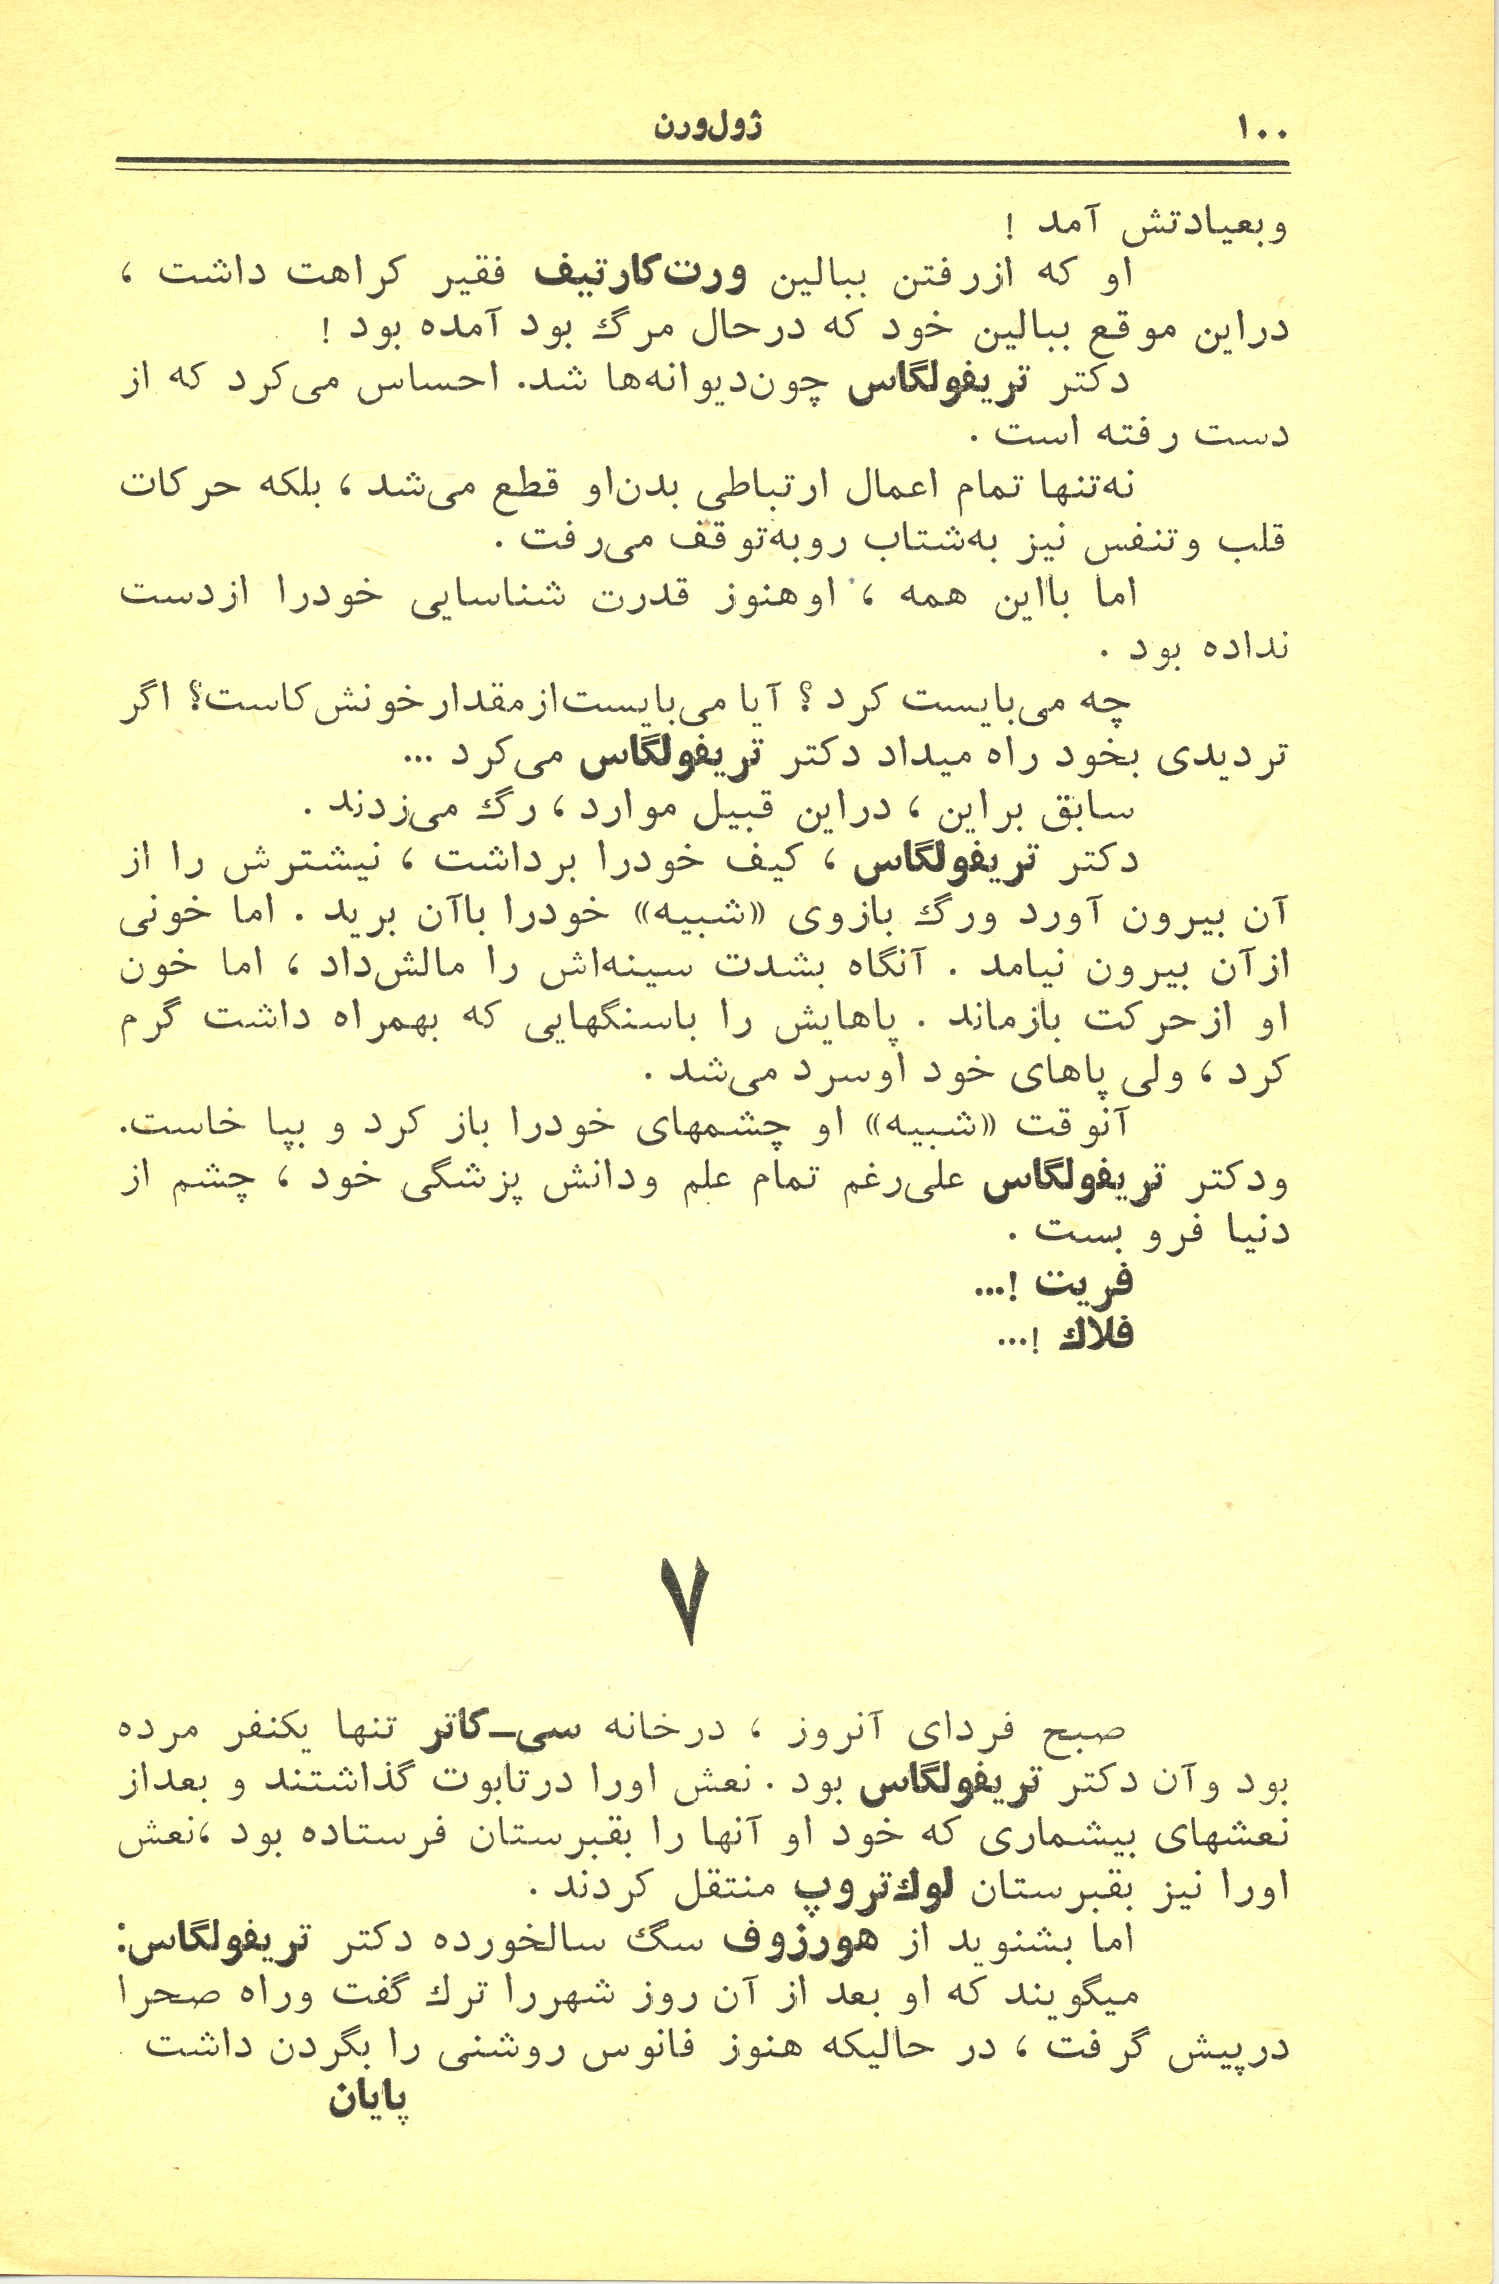 ۱۰۰
ژول‌ورن
وبعیادتش آمد !
او که ازرفتن ببالین ورت‌کارتیف فقیر کراهت داشت ،
دراین موقع ببالین خود که درحال مرگ بود آمده بود !
دکتر تریفولگاس چون‌دیوانه‌ها شد. احساس می‌کرد که از
دست رفته است .
نه‌تنها تمام اعمال ارتباطی بدن‌او قطع می‌شد ، بلکه حرکات
قلب وتنفس نیز به‌شتاب روبه‌توقف می‌رفت .
اما بااین همه ، اوهنوز قدرت شناسایی خودرا ازدست
نداده بود .
چه می‌بایست کرد ؟ آیا می‌بایست‌ازمقدارخونش‌کاست؟ اگر
تردیدی بخود راه میداد دکتر تریفولگاس می‌کرد ...
سابق براین ، دراین قبیل موارد ، رگ می‌زدند .
دکتر تریفولگاس ، کیف خودرا برداشت ، نیشترش را از
آن بیرون آورد ورگ بازوی «شبیه» خودرا باآن برید . اما خونی
ازآن بیرون نیامد . آنگاه بشدت سینه‌اش را مالش‌داد ، اما خون
او ازحرکت بازماند . پاهایش را باسنگهایی که بهمراه داشت گرم
کرد ، ولی پاهای خود اوسرد می‌شد .
آنوقت «شبیه» او چشمهای خودرا باز کرد و بپا خاست.
ودکتر تریفولگاس علی‌رغم تمام علم ودانش پزشگی خود ، چشم از
دنیا فرو بست .
فریت !...
فلاك !...
۷
صبح فردای آنروز ، درخانه سی‌ـ‌کاتر تنها یکنفر مرده
بود وآن دکتر تریفولگاس بود . نعش اورا درتابوت گذاشتند و بعداز
نعشهای بیشماری که خود او آنها را بقبرستان فرستاده بود ،نعش
اورا نیز بقبرستان لوك‌تروپ منتقل کردند .
اما بشنوید از هورزوف سگ سالخورده دکتر تریفولگاس:
میگویند که او بعد از آن روز شهررا ترك گفت وراه صحرا
درپیش گرفت ، در حالیکه هنوز فانوس روشنی را بگردن داشت .
پایان